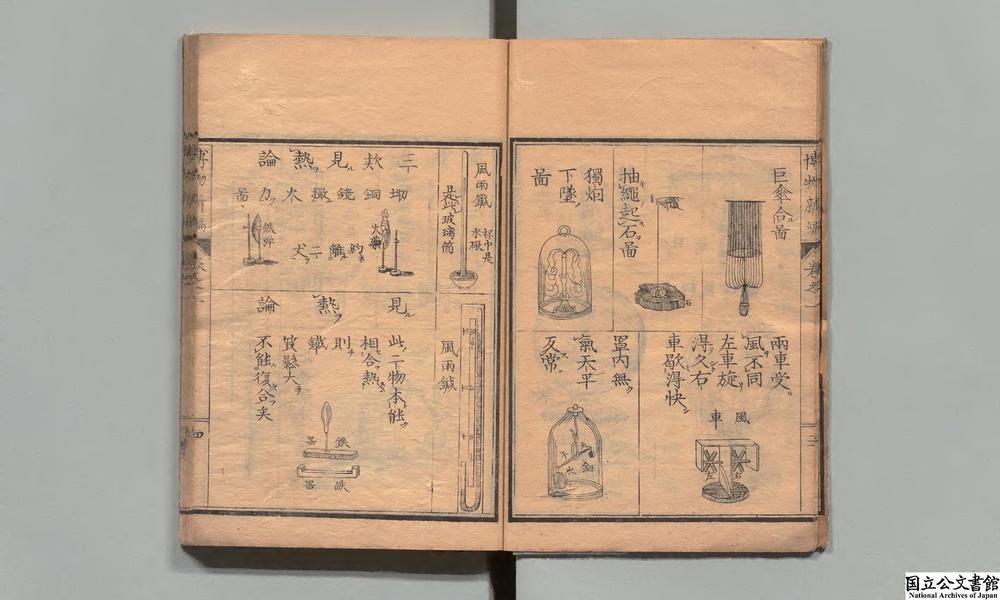 博物新編 卷之一
巨傘合ル圖
抽繩起石圖
石
獨炬
下墜
圖
兩車受
風不同
左車旋ル
得久右
車歇得快シ
風車
左
右
罩内無
氣天平
反常
水
鉛
風雨鍼
杯中是
水硍
是此玻璃筒
風雨鍼
三款見熱論
坳銅鏡撒火力圖
火藥
鐵彈
約離二尺
見熱論
此二物本能
相合熱
則
鐵
質鬆大
不能復合矣
鉄器
鉄器
国立公文書館
National Archives of Japan